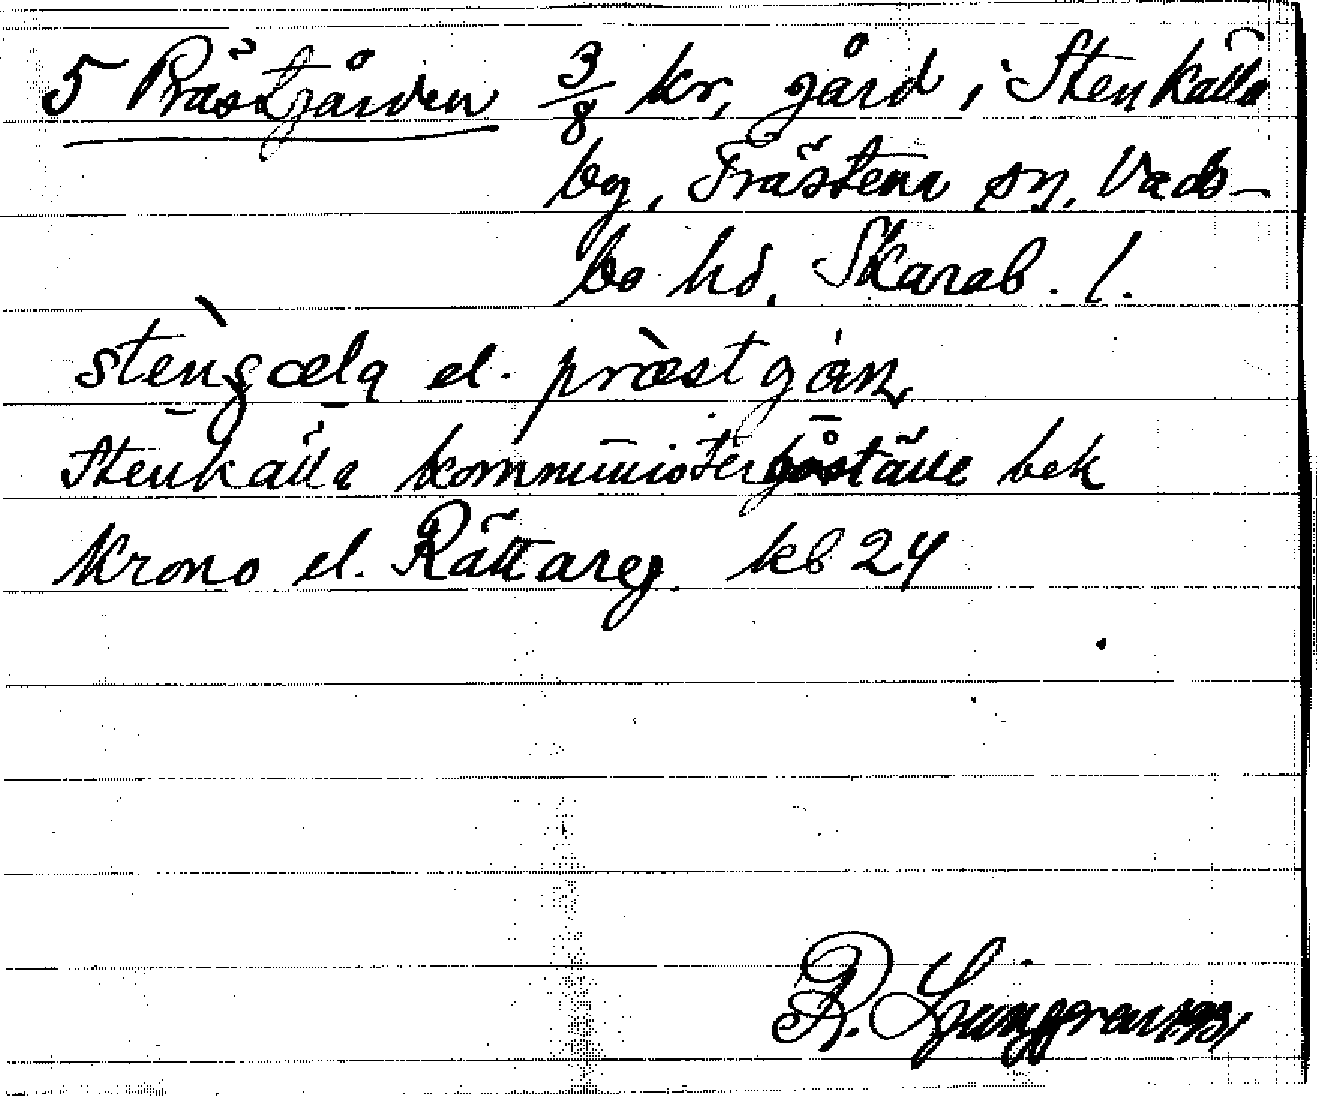 5 Prästgården 3/8 kr, gård i Stenkälla
by, Trästena sn, Vads-
bo hd, Skarab. l.
stèngçælą el. præ̀stgån,
Stenkälla kommunisterboställe bek
Krono el. Rättareg. kb 24
R. Ljunggren 1931